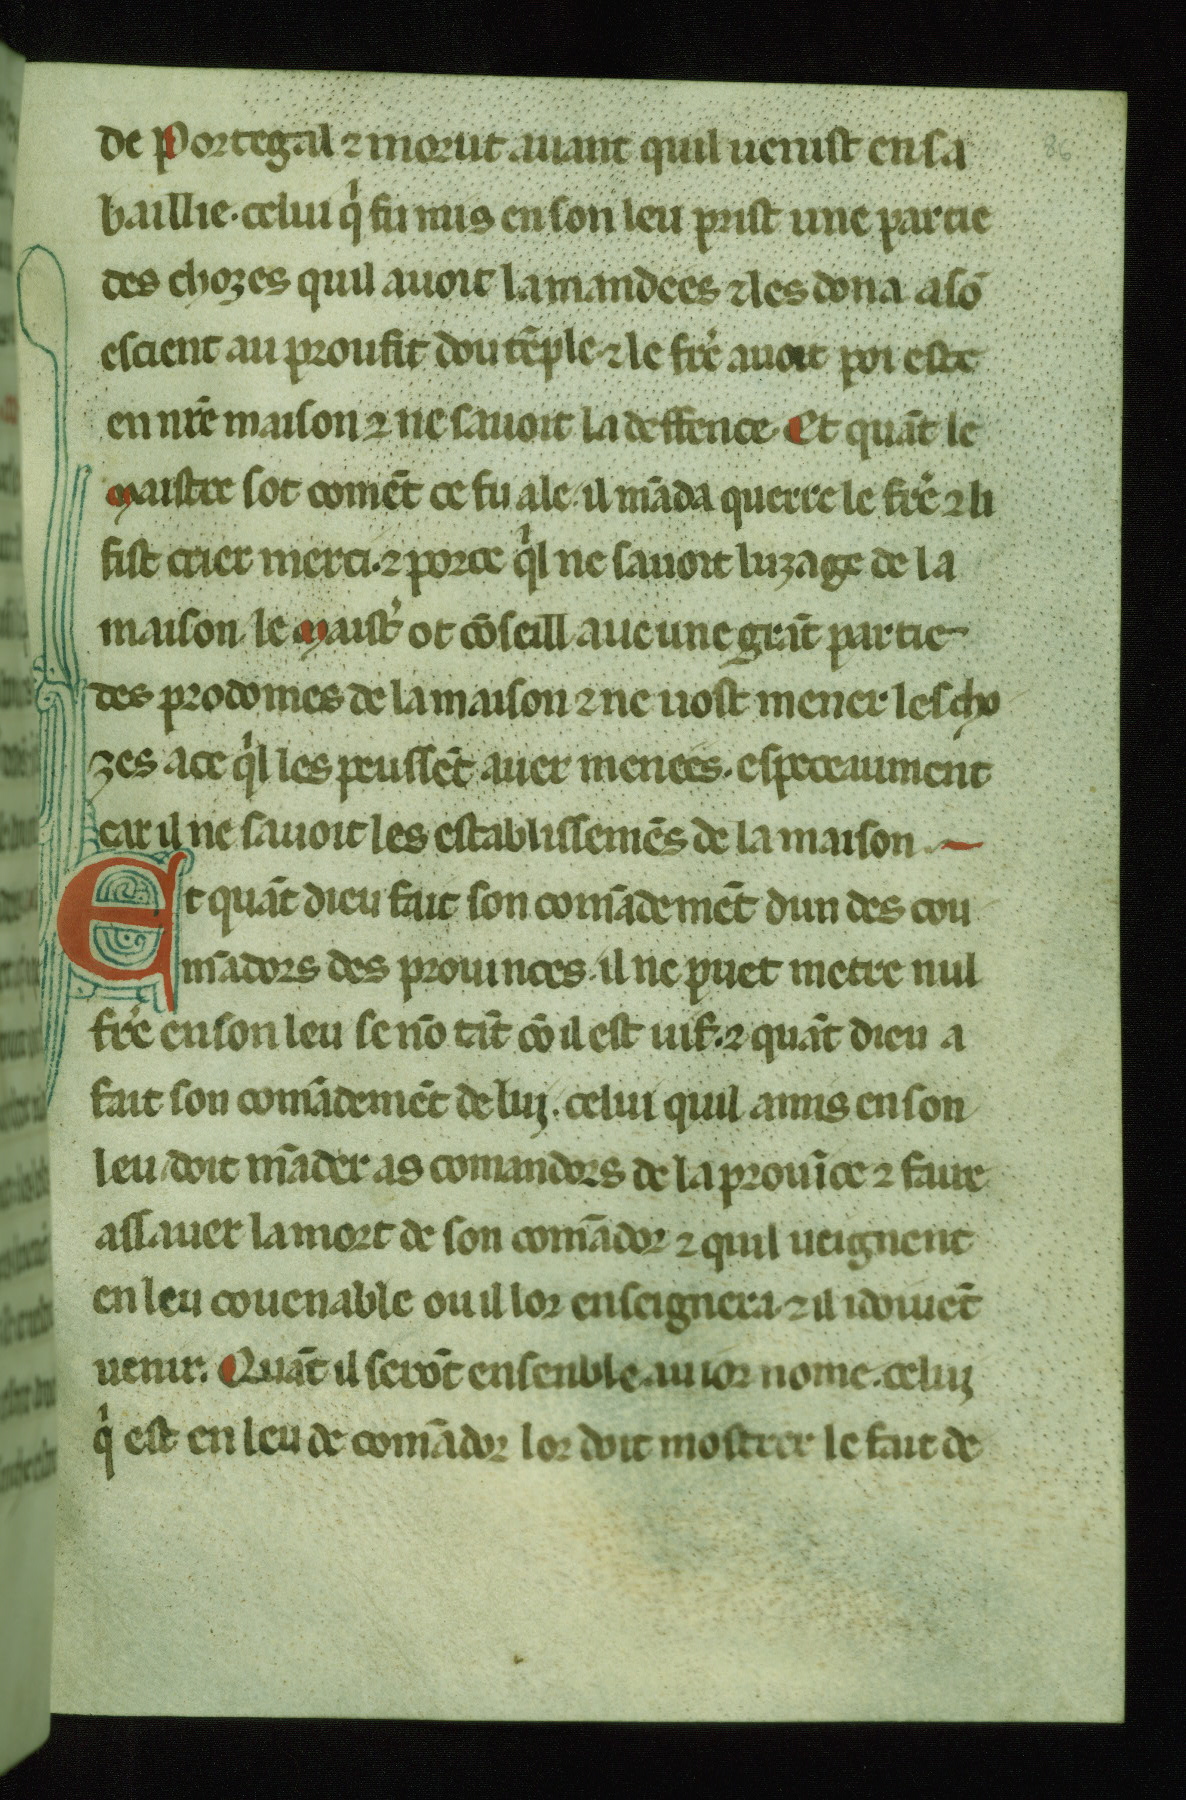 86
de Portegal ⁊ morut auant quil uenist en sa
baillie · celui q̍ fu mis en son leu prist une partie
des chozes quil auoit la mandees ⁊ les dona a sõ
escient au proufit dou tẽple · ⁊ le fr̃e auoit poi este
en nr̃e maison ⁊ ne sauoit la deffence · Et quãt le
Maistre sot comẽt ce fu ale · il mãda querre le fr̃e ⁊ li
fist crier merci · ⁊ porce q̍l ne sauoit luzage de la
maison · le Maist᾽ ot cõseill aue une grãt partie
des prodomes de la maison ⁊ ne uost mener les cho
zes a ce q̍l les peussẽt auer menees · especeaument
car il ne sauoit les establissemẽs de la maison ·
Et quãt dieu fait son comãdemẽt dun des cou
mãdors des prouinces · il ne puet metre nul
fr̃e en son leu se nõ tãt cõ il est uif · ⁊ quãt dieu a
fait son comãdemẽt de luy · celui quil a mis en son
leu doit mãder as comandors de la prouĩce ⁊ faire
assauer la mort de son comãdor ⁊ quil ueignent
en leu couenable ou il lor enseignera · ⁊ il i doiuẽt
uenir · Quãt il serõt ensenble au ior nome · celuy
q̍ est en leu de comãdor lor doit mostrer le fait de